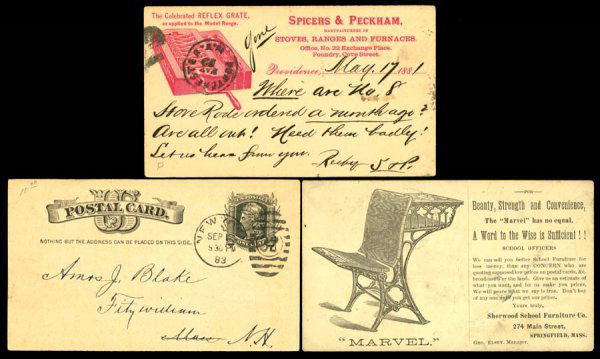 The Celebrated REFLEX GRATE,
as applied to the Model Range.
SPICERS & PECKHAM,
MANUFACTURERS OF
STOVES, RANGES AND FURNACES.
Office, No. 22 Exchange Place.
Foundry, Cove Street.
Providence, May, 17 1881
Where are No. 8
Stove Rods ordered a month ago?
Are all out! Need them badly!
Let us hear from you.
S & P.
POSTAL CARD.
NOTHING BUT THE ADDRESS CAN BE PLACED ON THIS SIDE.
NEW YORK
SEP
83
Amos J. Blake
Fitzwilliam
Mass N.H.
"MARVEL."
FOR
Beauty, Strength and Convenience,
The "Marvel" has no equal.
A Word to the Wise is Sufficient!!
SCHOOL OFFICERS
We can sell you better School Furniture for
less money, than any CONCERN who are
quoting supposed low prices on postal cards, &c.
broadcast over the land. Give us an estimate of
what you want, and let us make you prices.
We will prove what we say is true. Don't buy
of any one until you get our prices.
Yours truly,
Sherwood School Furniture Co.
274 Main Street,
SPRINGFIELD, MASS.
Geo. Elsey, Manager.